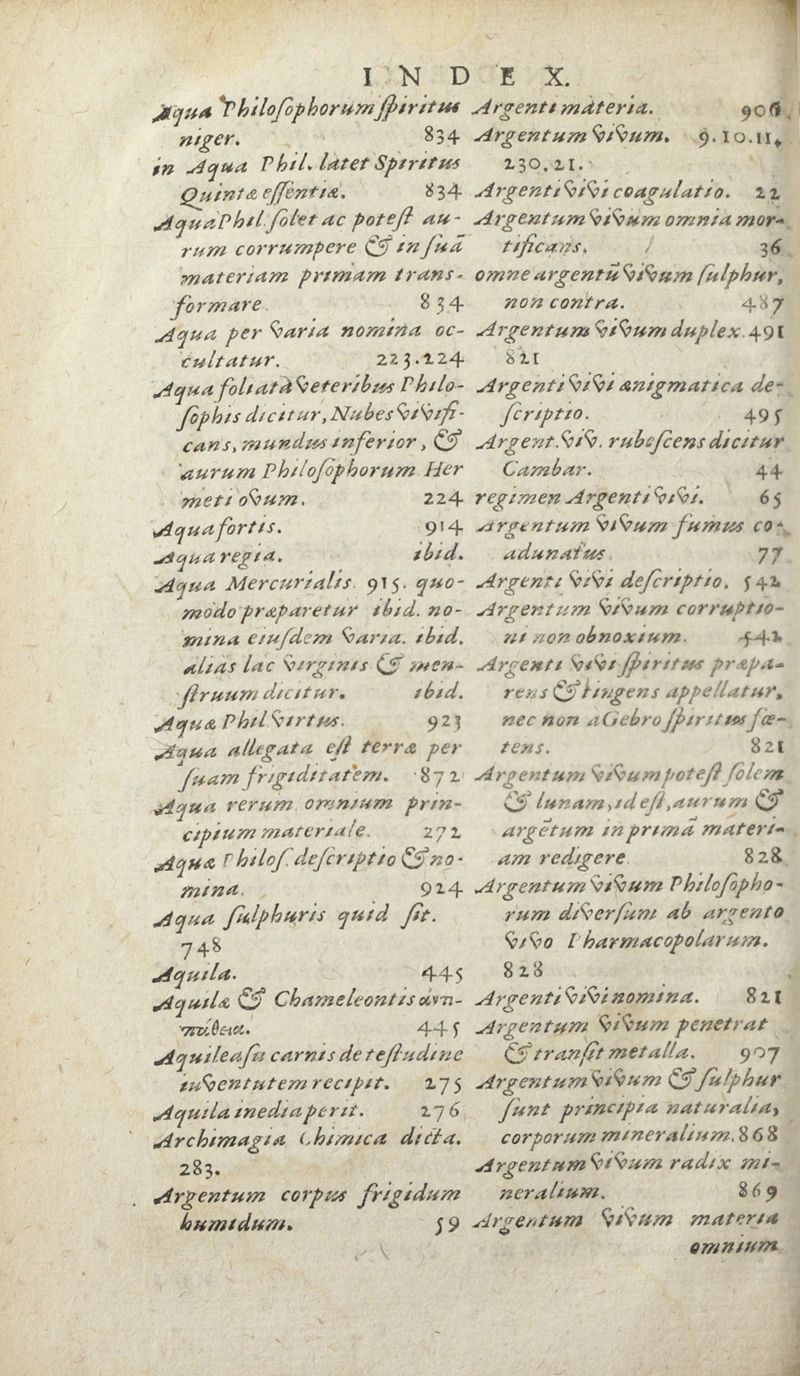 INDEX.
Aqua Philoſophorum ſpiritus
niger. 834
in Aqua Phil. latet Spiritus
Quintæ eſſentiæ. 834
Aqua Phil ſolet ac poteſt au-
rum corrumpere & in ſuā
materiam primam trans-
formare 834
Aqua per varia nomina oc-
cultatur. 223.224
Aqua foliata à veteribus Philo-
ſophis dicitur, Nubes vivifi-
cans, mundus inferior, &
aurum Philoſophorum Her
meti ovum. 224
Aqua fortis. 914
Aqua regia. ibid.
Aqua Mercurialis. 915. quo-
modo præparetur ibid. no-
mina eiuſdem varia. ibid.
alias lac virginis & men-
ſtruum dicitur. ibid.
Aquæ Phil virtus. 923
Aqua allegata eſt terræ per
ſuam frigiditatem. 872
Aqua rerum omnium prin-
cipium materiale. 272
Aquæ Philoſ. deſcriptio & no-
mina. 924
Aqua ſulphuris quid ſit.
748
Aquila. 445
Aquilæ & Chameleontis ἀντι-
πάθεια. 445
Aquile aſu carnis de teſtudine
iuventutem recipit. 275
Aquila inedia perit. 276
Archimagia Chimica dicta.
283.
Argentum corpus frigidum
humidum. 59
Argenti materia. 906.
Argentum vivum. 9.10.11.
230.21.
Argenti vivi coagulatio. 22
Argentum vivum omnia mor-
tificans. 36
omne argentū vivum ſulphur,
non contra. 487
Argentum vivum duplex. 491
821
Argenti vivi ænigmatica de-
ſcriptio. 495
Argent. viv. rubeſcens dicitur
Cambar. 44
regimen Argenti vivi. 65
Argentum vivum fumus co-
adunatus 77
Argenti vivi deſcriptio. 542
Argentum vivum corruptio-
ni non obnoxium. 542
Argenti vivi ſpiritus præpa-
rens & tingens appellatur,
nec non a Gebro ſpiritus fœ-
tens. 821
Argentum vivum poteſt ſolem
& lunam, id eſt, aurum &
argētum in primā materi-
am redigere 828
Argentum vivum Philoſopho-
rum diverſum ab argento
vivo Pharmacopolarum.
828
Argenti vivi nomina. 821
Argentum vivum penetrat
& tranſit metalla. 907
Argentum vivum & ſulphur
ſunt principia naturalia,
corporum mineralium. 868
Argentum vivum radix mi-
neralium. 869
Argentum vivum materia
omnium